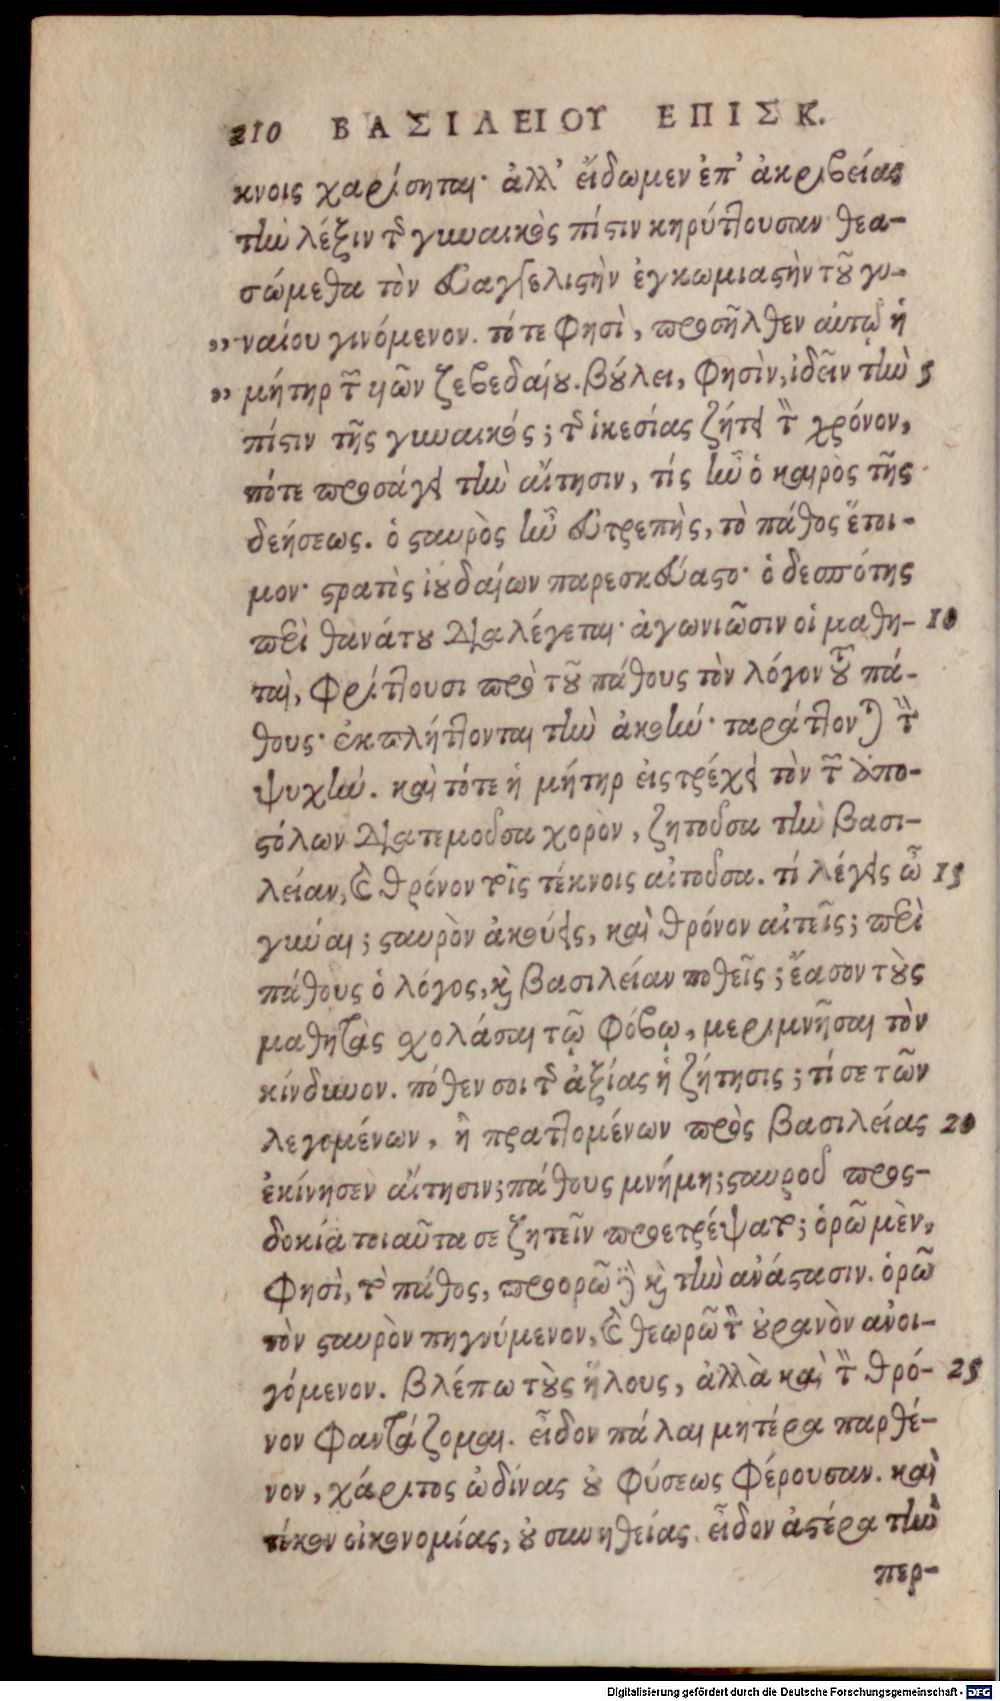 210 ΒΑΣΙΛΕΙΟΥ ΕΠΙΣΚ.
κνοις χαρίσηται· ἀλλ' εἴδωμεν ἐπ' ἀκριβείας
τὴν λέξιν τῆς γυναικὸς πίστιν κηρύττουσαν θεα-
σώμεθα τὸν εὐαγγελιστὴν ἐγκωμιαστὴν τοῦ γυ-
„ ναίου γινόμενον. τότε φησὶ, προσῆλθεν αὐτῷ ἡ
„ μήτηρ τῶν υἱῶν ζεβεδαίου. βούλει, φησὶν, ἰδεῖν τὴν 5
πίστιν τῆς γυναικός; τῆς ἱκεσίας ζήτει τὸν χρόνον,
πότε προσάγει τὴν αἴτησιν, τίς ἦν ὁ καιρὸς τῆς
δεήσεως. ὁ σταυρὸς ἦν εὐτρεπὴς, τὸ πάθος ἕτοι-
μον· στρατὸς ἰουδαίων παρεσκεύαστο· ὁ δεσπότης
περὶ θανάτου διαλέγεται· ἀγωνιῶσιν οἱ μαθη- 10
ταὶ, φρίττουσι πρὸ τοῦ πάθους τὸν λόγον τοῦ πά-
θους· ἐκπλήττονται τὴν ἀκοήν· ταράττονται τὴν
ψυχήν. καὶ τότε ἡ μήτηρ εἰστρέχει τὸν τῶν ἀπο-
στόλων διατεμοῦσα χορὸν, ζητοῦσα τὴν βασι-
λείαν, καὶ θρόνον τοῖς τέκνοις αἰτοῦσα. τί λέγεις ὦ 15
γύναι; σταυρὸν ἀκούεις, καὶ θρόνον αἰτεῖς; περὶ
πάθους ὁ λόγος, καὶ βασιλείαν ποθεῖς; ἔασον τοὺς
μαθητὰς σχολάσαι τῷ φόβῳ, μεριμνῆσαι τὸν
κίνδυνον. πόθεν σοι τῆς ἀξίας ἡ ζήτησις; τί σε τῶν
λεγομένων, ἢ πραττομένων πρὸς βασιλείας 20
ἐκίνησεν αἴτησιν; πάθους μνήμη; σταυροῦ προς-
δοκία τοιαῦτα σε ζητεῖν προετρέψατο; ὁρῶ μὲν,
φησὶ, τὸ πάθος, προορῶ δὲ καὶ τὴν ἀνάστασιν. ὁρῶ
τὸν σταυρὸν πηγνύμενον, καὶ θεωρῶ τὸν οὐρανὸν ἀνοι-
γόμενον. βλέπω τοὺς ἥλους, ἀλλὰ καὶ τὸν θρό- 25
νον φαντάζομαι. εἶδον πάλαι μητέρα παρθέ-
νον, χάριτος ὠδίνας οὐ φύσεως φέρουσαν. καὶ
τόκον οἰκονομίας, οὐ συνηθείας. εἶδον ἀστέρα τὴν
περ-
Digitalisierung gefördert durch die Deutsche Forschungsgemeinschaft - DFG